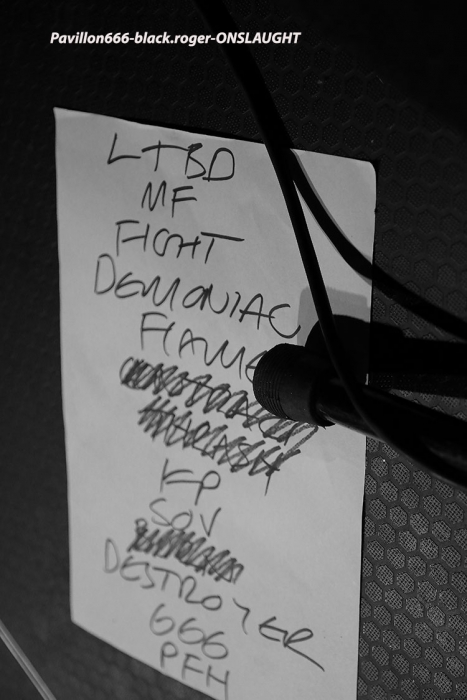 Pavillon666-black.roger-ONSLAUGHT
LTBD
MF
FIGHT
DEMONIAC
FLAME
KP
SOV
DESTROYER
666
PFH